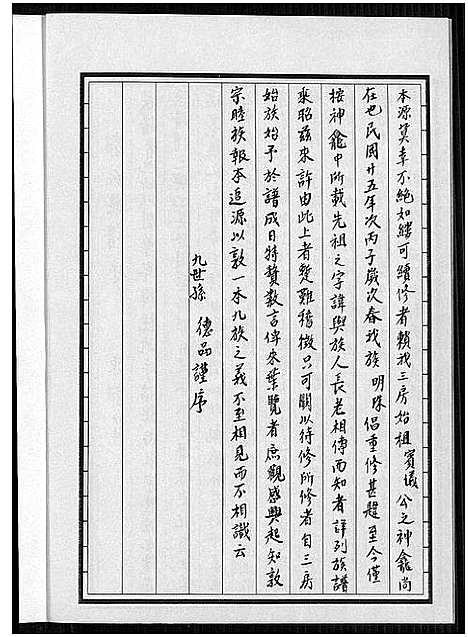 本源莫幸不絕如縷可續修者賴我三房始祖賓議公之神龕尚
在也民國廿五年次丙子歲次春我族明珠倡重修甚題至今僅
按神龕中所載先祖之字諱與族人長老相傳而知者詳列族譜
乘昭茲來許由此上者楚難稽徵只可闕以待修所修者自三房
始族始予於譜成日特贅数言俾來葉覽者庶觀感興起知敦
宗睦族報本追源以敦一本九族之義不至相見而不相識云
九世孫 德品謹序